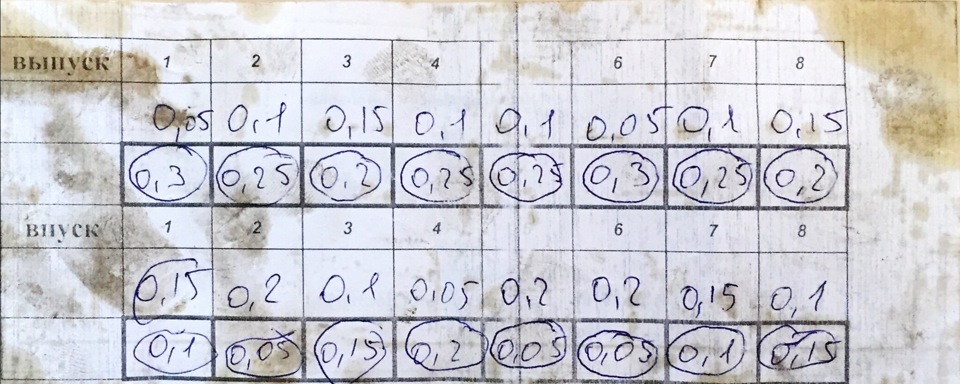 выпуск 1 2 3 4 6 7 8
0,05 0,1 0,15 0,1 0,1 0,05 0,1 0,15
0,3 0,25 0,2 0,25 0,25 0,3 0,25 0,2
впуск 1 2 3 4 6 7 8
0,15 0,2 0,1 0,05 0,2 0,2 0,15 0,1
0,1 0,05 0,15 0,2 0,05 0,05 0,1 0,15